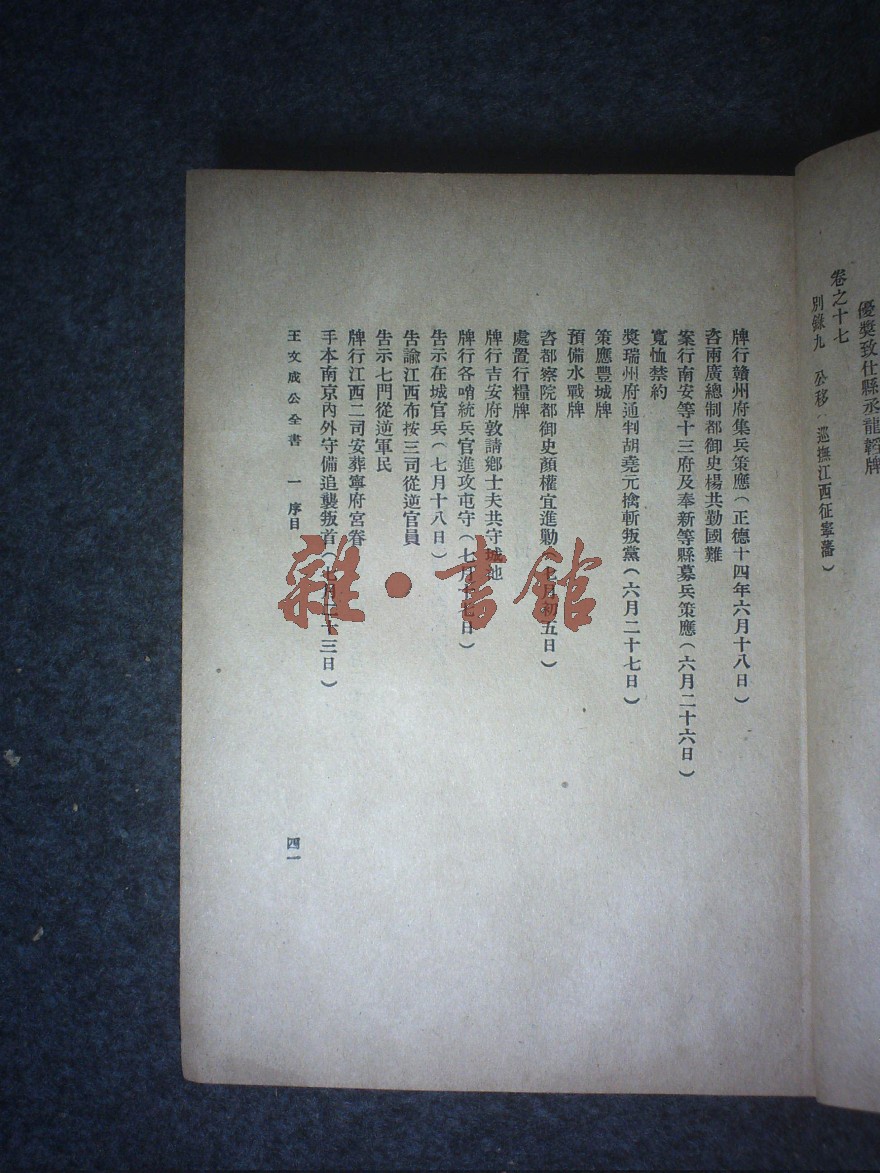 優獎致仕縣丞龍韜牌
卷之十七
別錄九　公移(巡撫江西征寧藩)
牌行贛州府集兵策應(正德十四年六月十八日)
咨兩廣總制都御史楊共勤國難
案行南安等十三府及奉新等縣募兵策應(六月二十六日)
寬恤禁約
獎瑞州府通判胡堯元擒斬叛黨(六月二十七日)
策應豐城牌
預備水戰牌
咨都察院都御史顏權宜進勦(七月初五日)
處置行糧牌
牌行吉安府敦請鄉士夫共守城池
牌行各哨統兵官進攻屯守(七月十七日)
告示在城官兵(七月十八日)
告諭江西布按三司從逆官員
告示七門從逆軍民
牌行江西二司安葬寧府宮眷
手本南京內外守備追襲叛首(七月二十三日)
王文成公全書　一　序目
四一
雜·書館